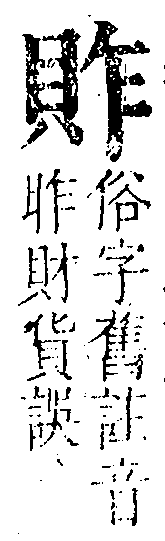 䝫
俗字舊註音
昨財貨誤